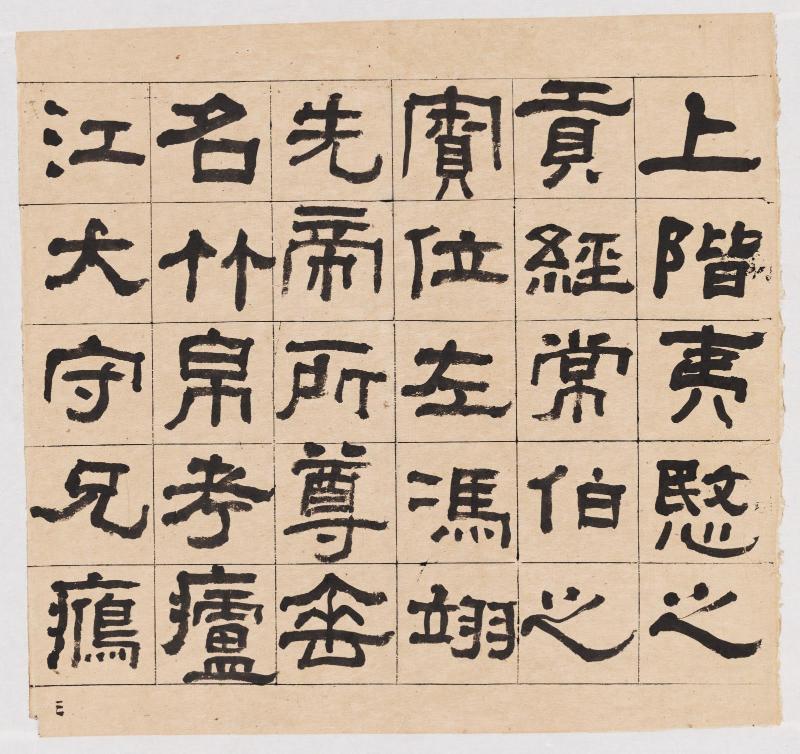 上階夷愍之
貢經常伯之
賓位左馮翊
先帝所尊垂
名竹帛考廬
江大守兄鴈
三